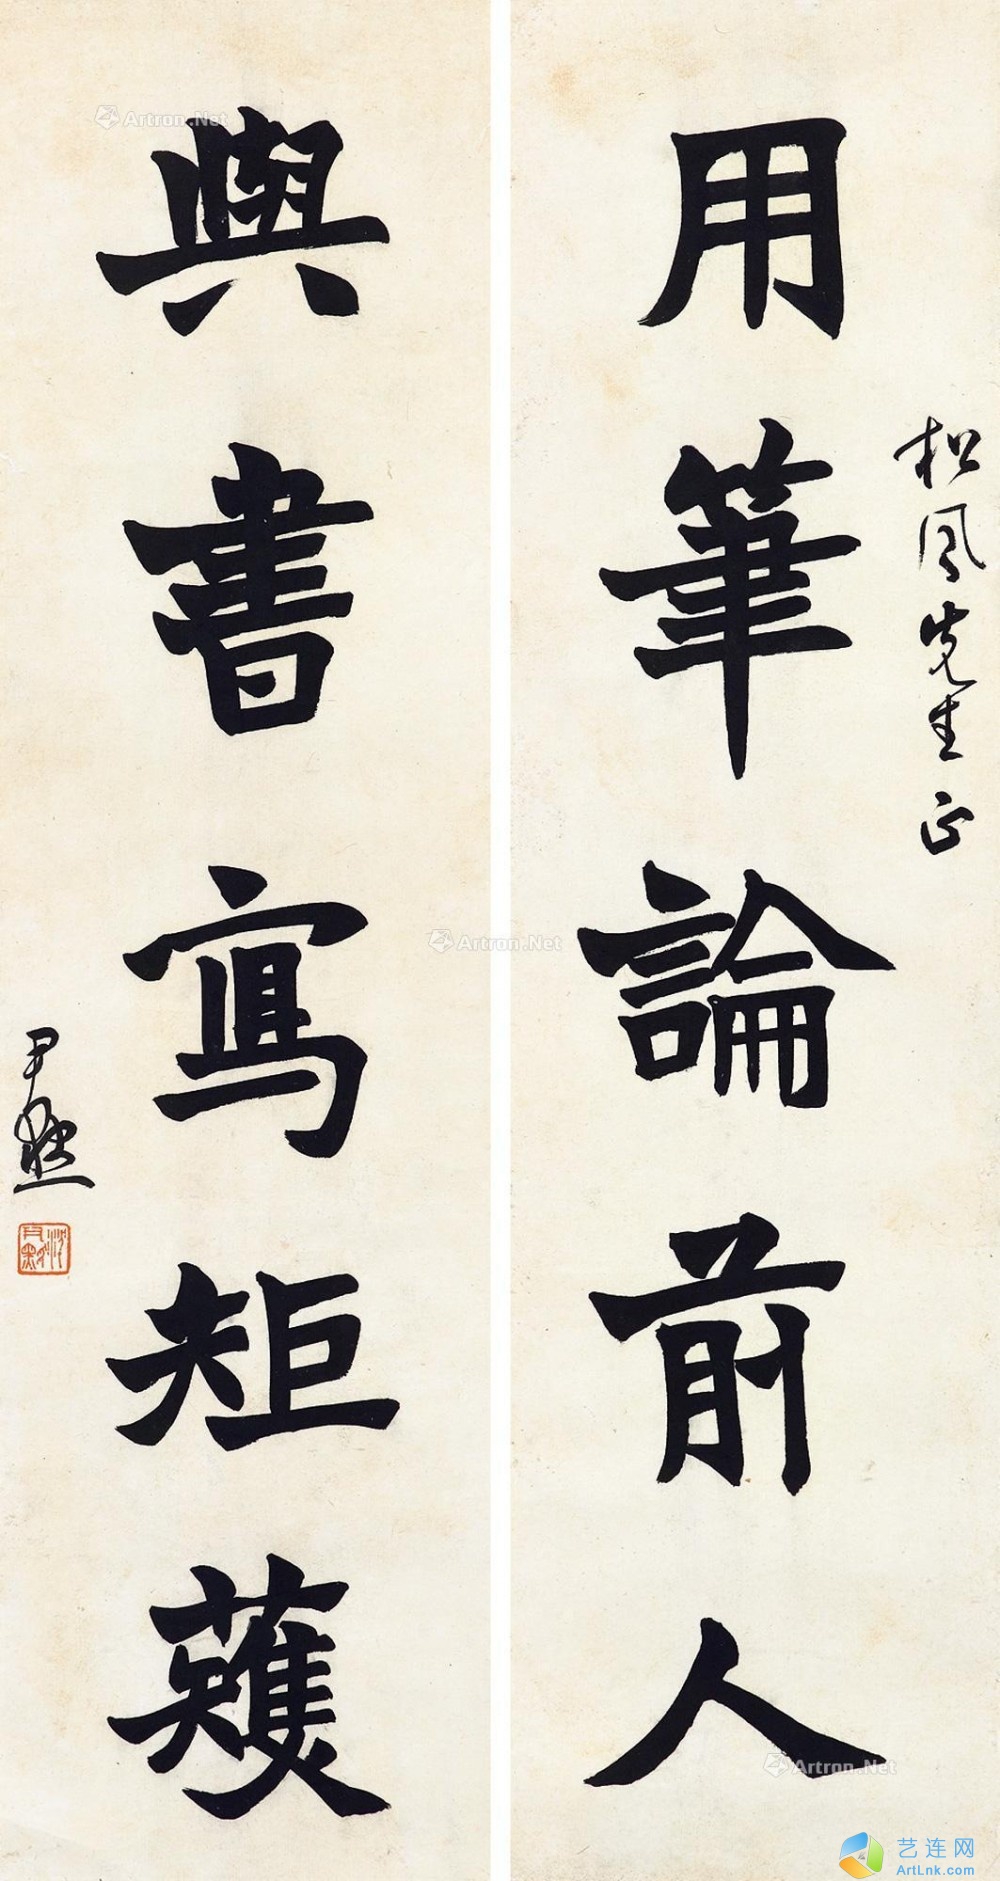 松風先生正
用筆論前人
與書寫矩蒦
尹默
沈尹默
Artron.Net
Artron.Net
Artron.Net
艺连网
ArtLnk.com